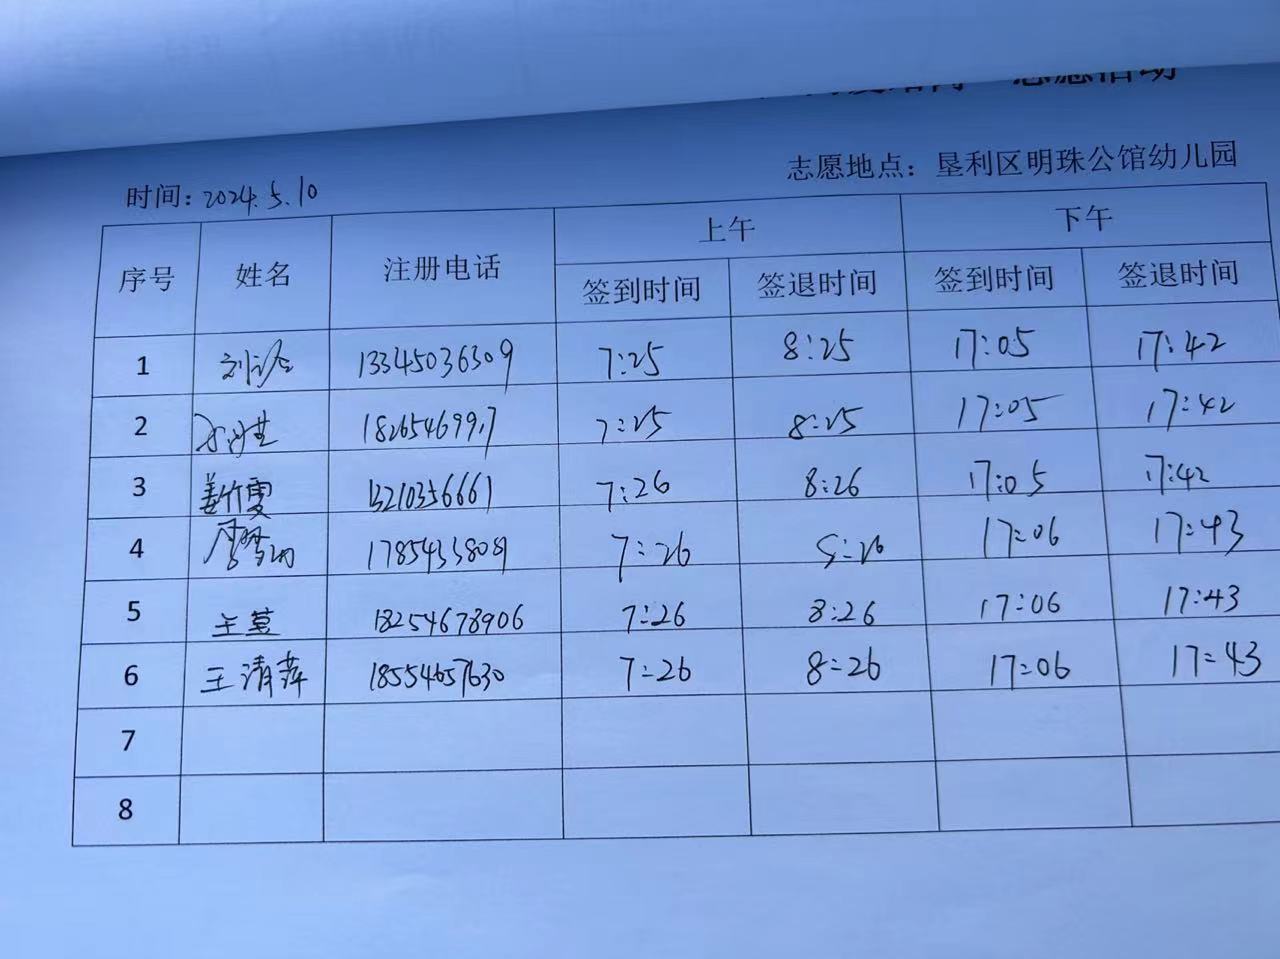 志愿活动
时间：2024.5.10 志愿地点：垦利区明珠公馆幼儿园
序号 姓名 注册电话 上午 下午
签到时间 签退时间 签到时间 签退时间
1 13345036309 7:25 8:25 17:05 17:42
2 7:25 8:25 17:05 17:42
3 姜竹雯 13210356661 7:26 8:26 17:05 17:42
4 17854338089 7:26 8:26 17:06 17:43
5 王莹 18254678906 7:26 8:26 17:06 17:43
6 王清萍 18554657630 7:26 8:26 17:06 17:43
7
8